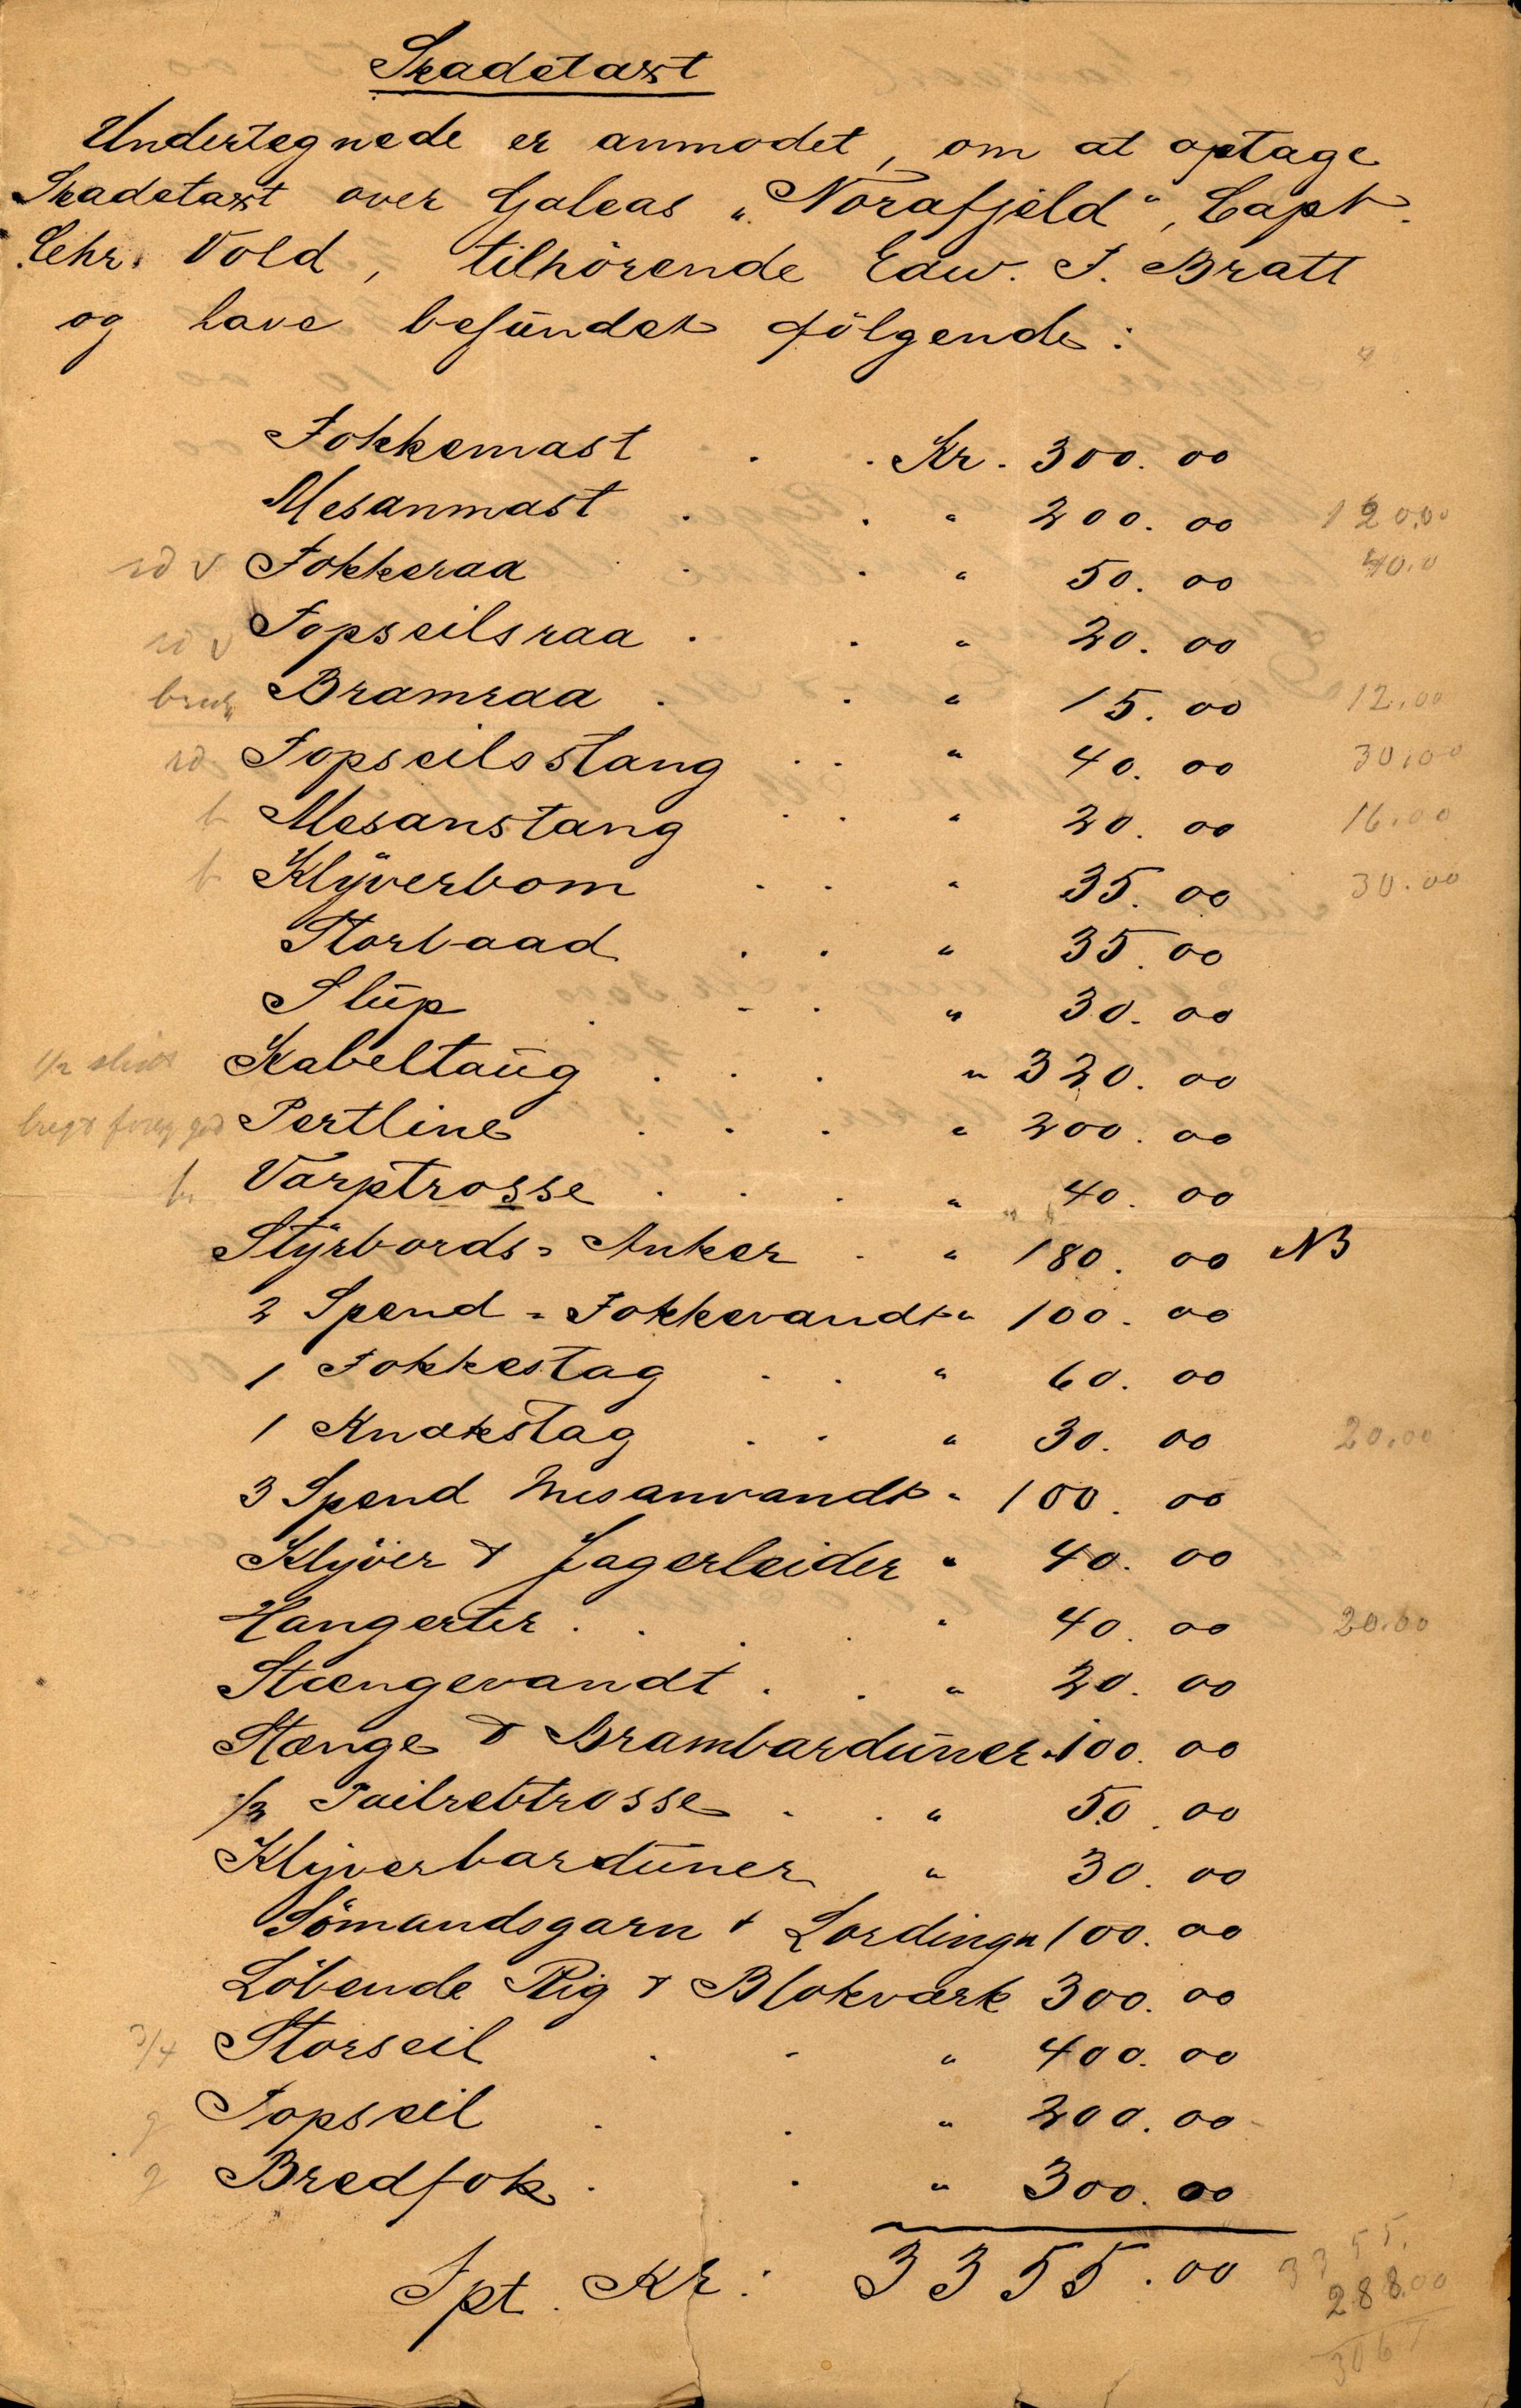 Skadetaxt
Undertegnede er anmodet, om at optage
Skadetaxt over Galeas „Norafjeld“, Capt.
Chr. Vold, tilhörende Edw. I. Bratt
og have befundet fölgende:
Fokkemast . . Kr. 300.00
Mesanmast . . " 200.00 120.00
Fokkeraa . . " 50.00 40.0
Topseilsraa . . " 20.00
Bramraa . . " 15.00 12.00
Topseilsstang . . " 40.00 30.00
b Mesanstang . . " 20.00 16.00
b Klyverbom . . " 35.00 30.00
Storbaad . . " 35.00
Slup . . . " 30.00
1/2 slidt Kabeltaug . . . " 320.00
Pertline . . . " 200.00
Varptrosse . . . " 40.00
Styrbords=Anker . " 180.00 NB
2 Spend=Fokkevandt " 100.00
1 Fokkestag . . " 60.00
1 Knækstag . . " 30.00 20.00
3 Spend Mesanvandt " 100.00
Klyver & Jagerleider " 40.00
Hangerter . . . . " 40.00 20.00
Stængevandt . . " 20.00
Stænge & Brambarduner " 100.00
1/2 Tailrebtrosse . . " 50.00
Klyverbarduner " 30.00
Sömandsgarn & Lording " 100.00
Löbende Rig & Blokværk 300.00
3/4 Storseil . . " 400.00
g Topseil . . " 200.00
g Bredfok . . " 300.00
Tpt. Kr: 3355.00 3355.
288.00
3067